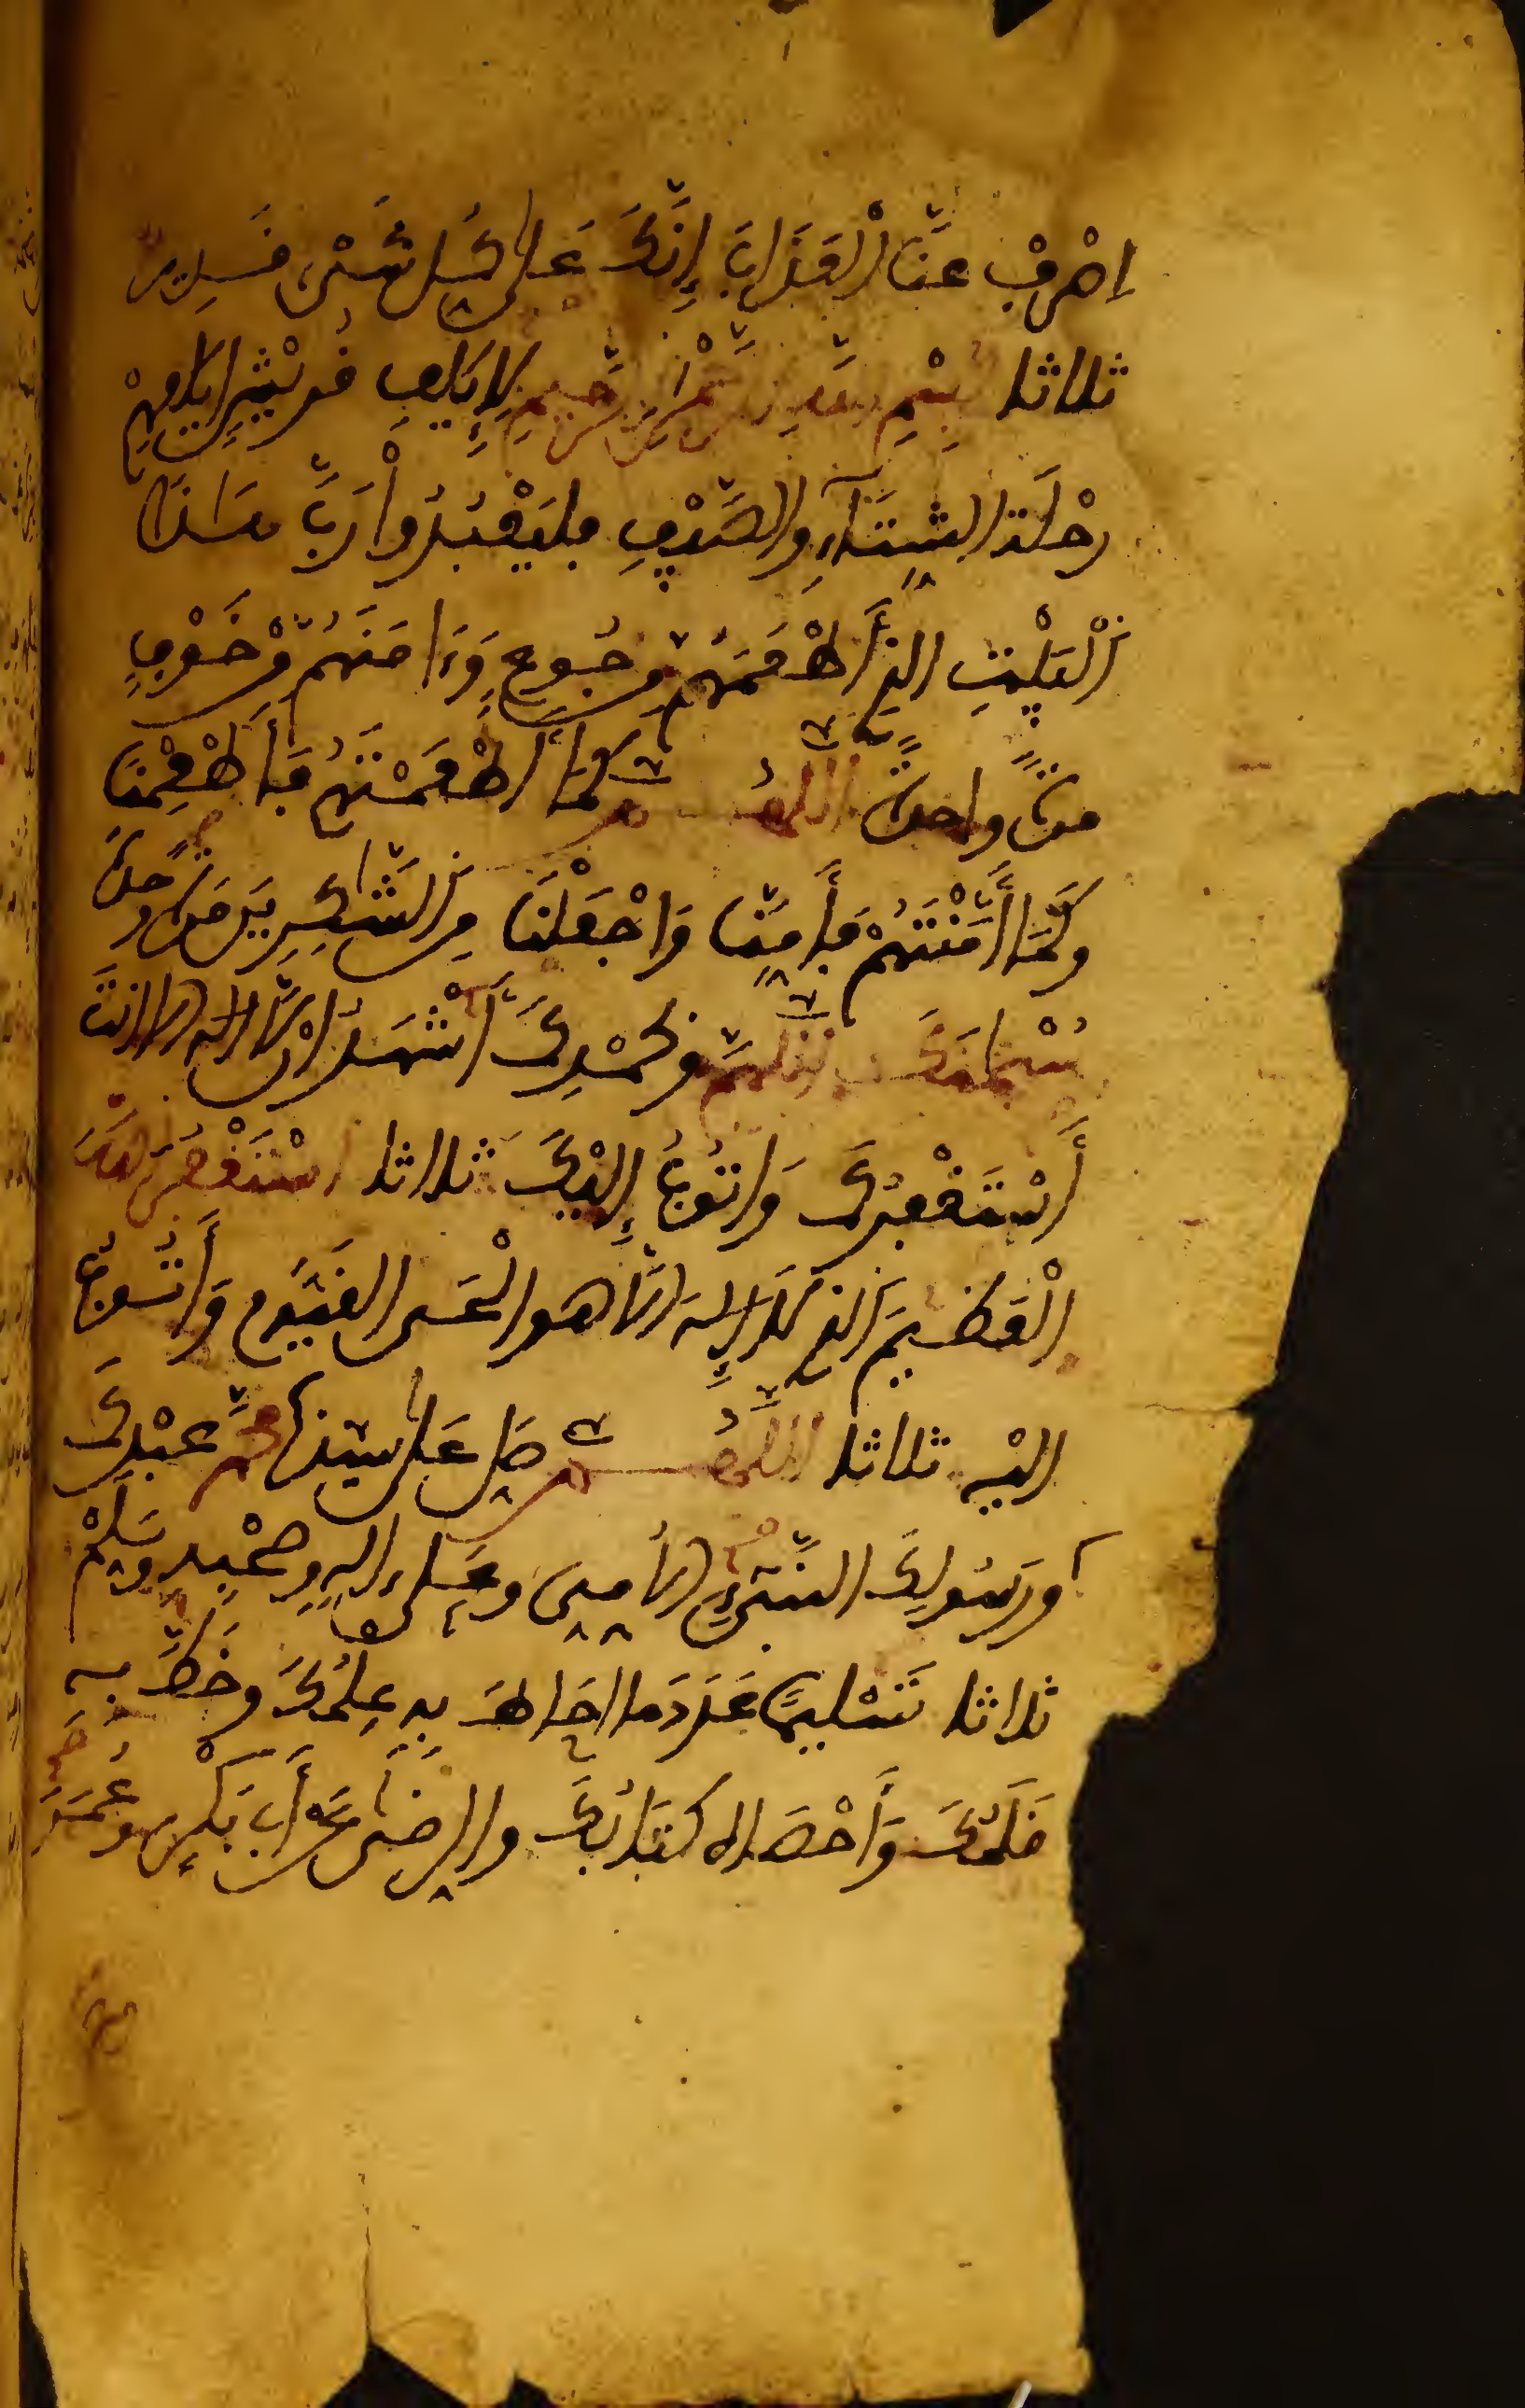 اِصْرِفْ عَنَّا الْعَذَابَ إِنَّكَ عَلَى كُلِّ شَيْءٍ قَدِيرٌ
ثلاثا بِسْمِ اللهِ الرَّحْمَنِ الرَّحِيمِ لِإِيلَفِ قُرَيْشٍ إِيلَافِهِمْ
رِحْلَةَ الشِّتَاءِ وَالصَّيْفِ فَلْيَعْبُدُواْ رَبَّ هَذَا
الْبَيْتِ الذِي أَطْعَمَهُم مِّن جُوعٍ وَءَامَنَهُم مِّنْ خَوْفٍ
مرةً واحدةً اللَّهُمَّ كَمَا أَطْعَمْتَهُمْ فَأَطْعِمْنَا
وَكَمَا أَمَّنْتَهُمْ فَأَمِّنَّا وَاجْعَلْنَا مِنَ الشَّاكِرِينَ مرة واحدة
سُبْحَانَكَ اللَّهُمَّ وَبِحَمْدِكَ أَشْهَدُ أَنْ لَّا إله إلا أنتَ
أَسْتَغْفِرُكَ وَأَتُوبُ إِلَيْكَ ثلاثا أَسْتَغْفِرُ اللهَ
الْعَظِيمَ الذِي لَا إِلَهَ إِلَّا هو الْحَي القَيُّوم وَأَتُوبُ
إليْهِ ثلاثا اللَّهُمَّ صَلِّ عَلَى سَيِّدِنَا مُحَمَّدٍ عَبْدِكَ
وَرَسُولِكَ النَّبِيِّ الأُمِّيِّ وعَلَى ءَالِهِ وَصَحْبِهِ وَسَلِّمْ
ثلاثا تَسْلِيمًا عَدَدَ مَا أَحَاطَ بِهِ عِلْمُكَ وَخَطَّ بِهِ
قَلَمُكَ وَأَحْصَاهُ كِتَابُكَ وَالرِّضَى عَنْ أَبِي بَكْرٍ وَعُمَرَ